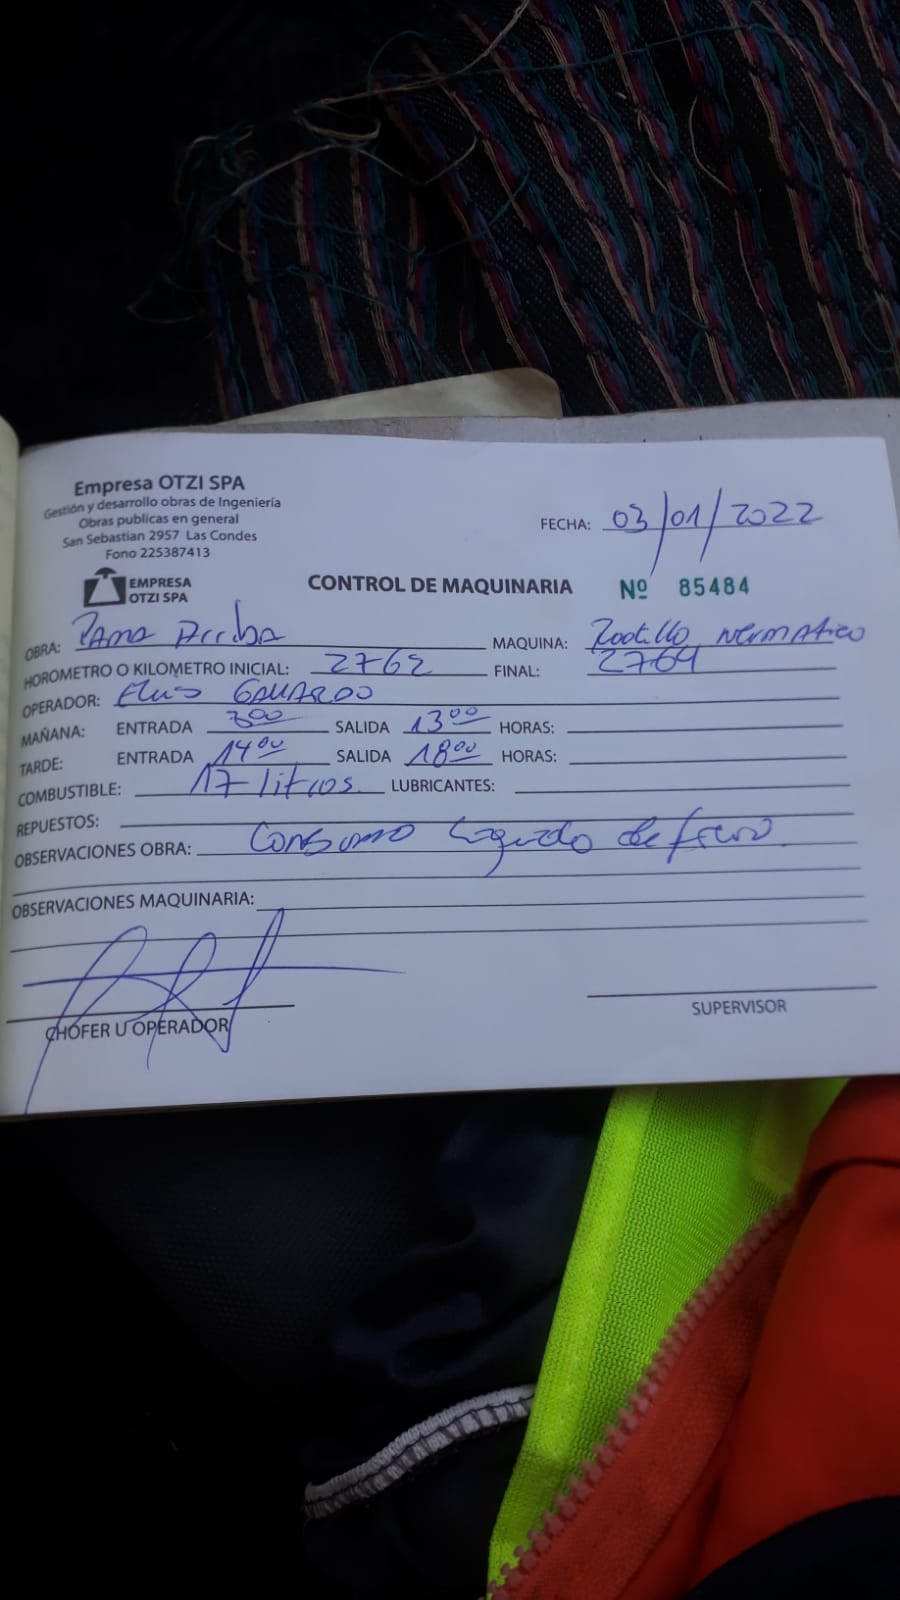 Empresa OTZI SPA
Gestión y desarrollo obras de Ingeniería
Obras publicas en general
San Sebastian 2957 Las Condes
Fono 225387413
FECHA: 03/01/2022
EMPRESA
OTZI SPA
CONTROL DE MAQUINARIA Nº 85484
OBRA: Pama Arriba MAQUINA: Rodillo
HOROMETRO O KILOMETRO INICIAL: 2762 FINAL: 2764
OPERADOR: GALLARDO
MAÑANA: ENTRADA 800 SALIDA 1300 HORAS:
TARDE: ENTRADA 1400 SALIDA 1800 HORAS:
COMBUSTIBLE: 17 litros. LUBRICANTES:
REPUESTOS:
OBSERVACIONES OBRA: Consumo de freno.
OBSERVACIONES MAQUINARIA:
CHOFER U OPERADOR
SUPERVISOR